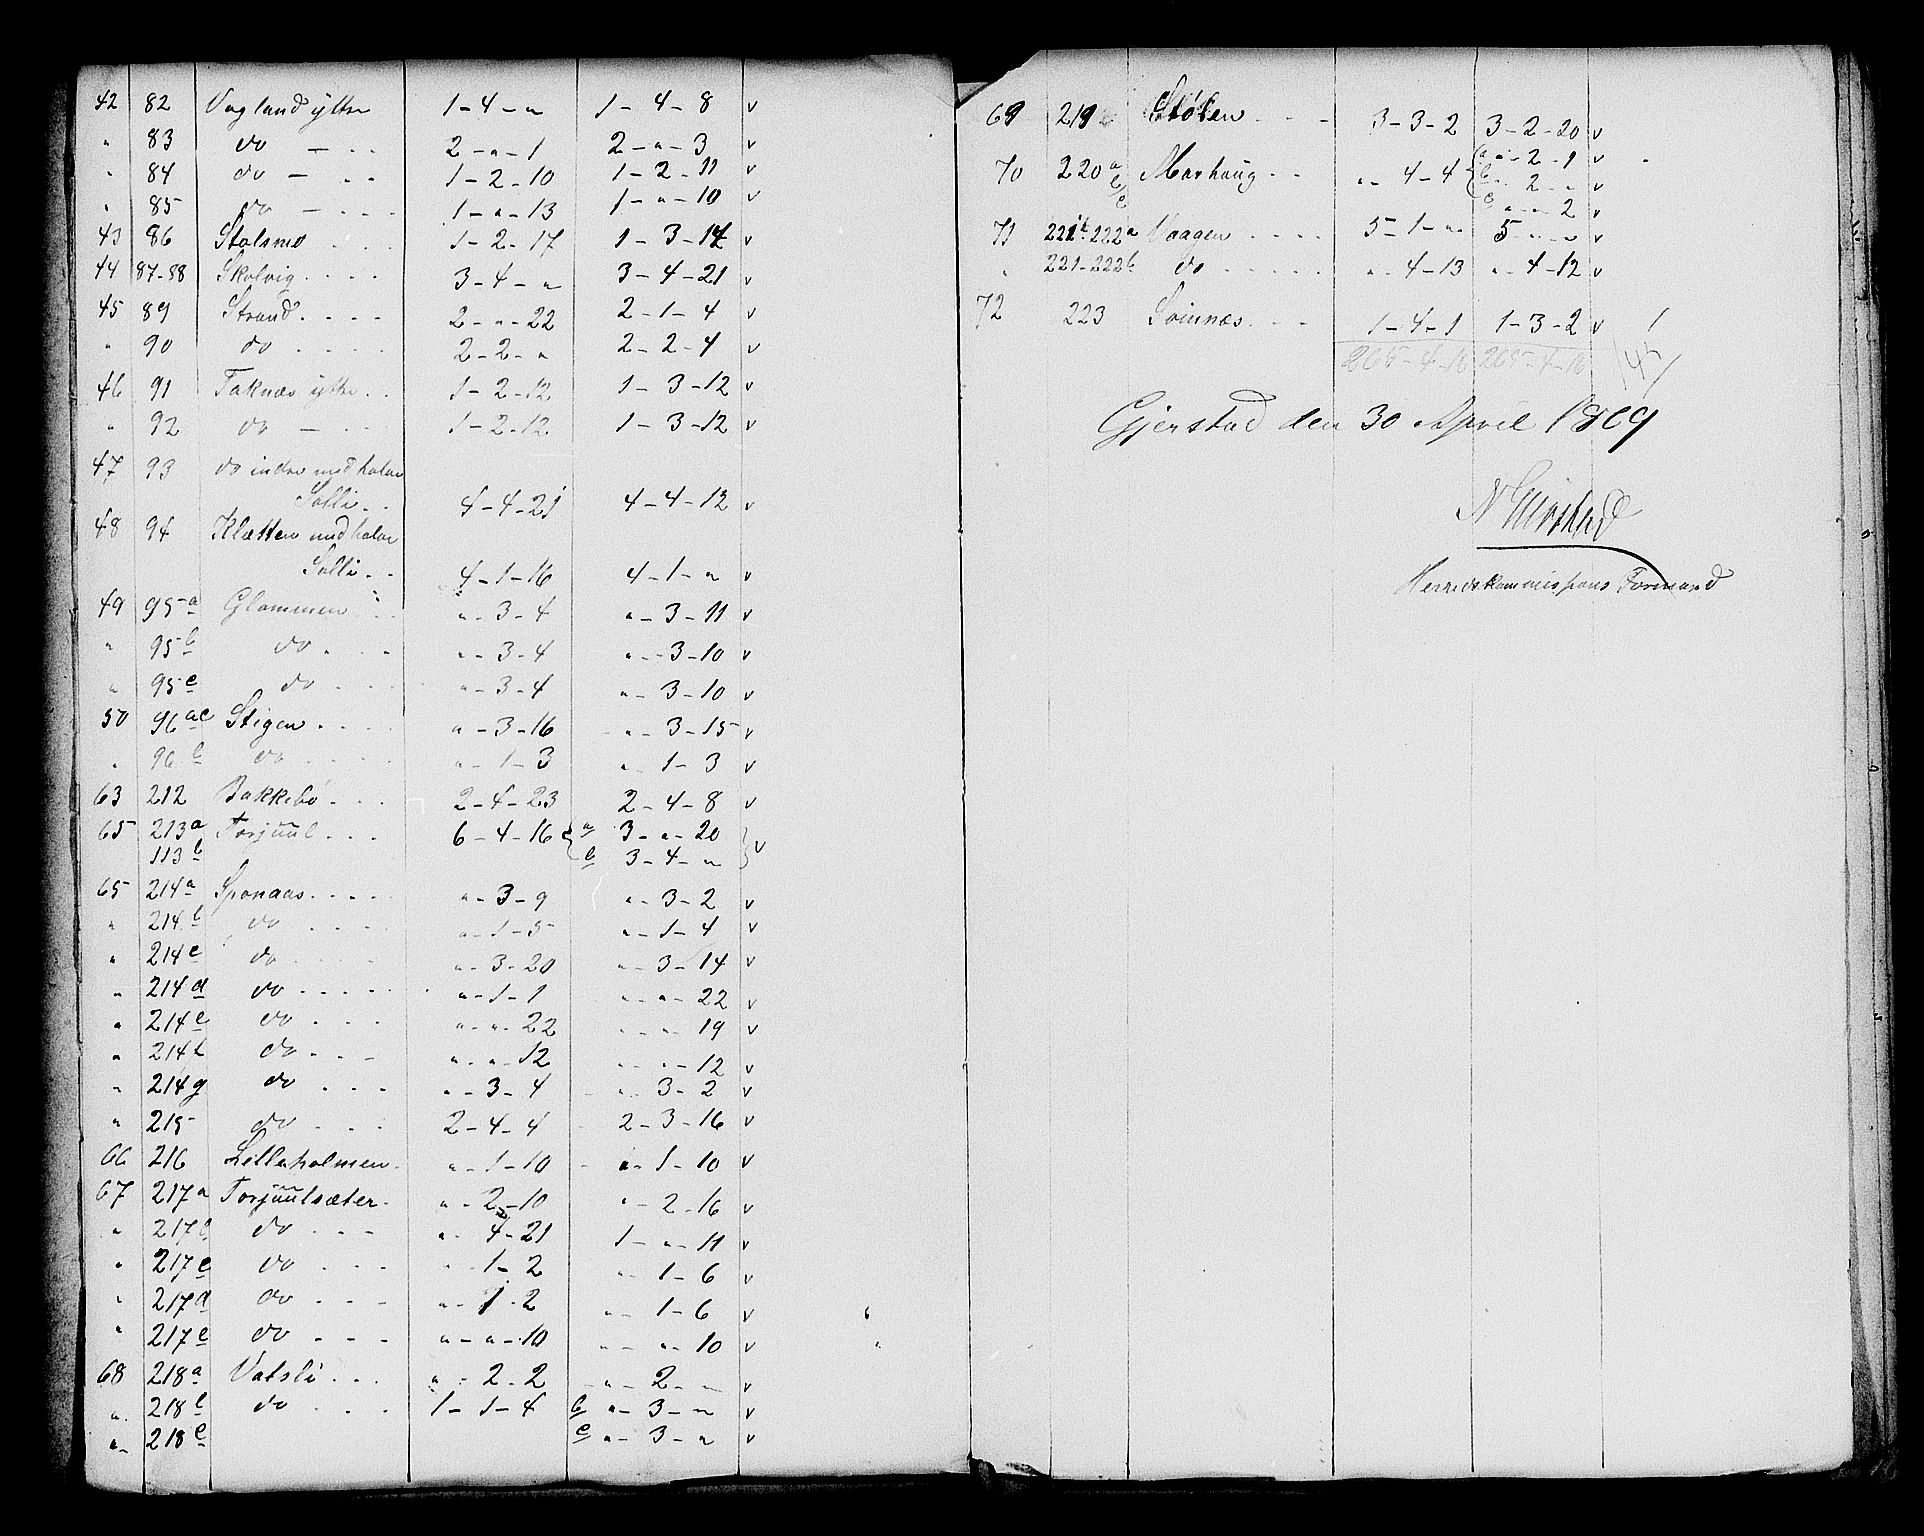 42 82 Vagland ytre 1-4-" 1-4-8 v
" 83 do - . . 2-"-1 2-"-3 v
" 84 do - . . 1-2-10 1-2-11 v
" 85 do - . . . 1-"-13 1-"-10 v
43 86 Stolsmo . . . 1-2-17 1-3-14 v
44 87-88 Skolvig . . . . 3-4-" 3-4-21 v
45 89 Strand . . . . 2-"-22 2-1-4 v
" 90 do . . . . 2-2-" 2-2-4 v
46 91 Taknæs ytre . . 1-2-12 1-3-12 v
" 92 do - . . . 1-2-12 1-3-12 v
47 93 do indre med halve
Solli . . 4-4-21 4-4-12 v
48 94 Kletten med halve
Solli . . 4-1-16 4-1-" v
49 95 a Glammen . . . "-3-4 "-3-11 v
" 95 b do . . . "-3-4 "-3-10 v
" 95 c do . . . "-3-4 "-3-10 v
50 96 ac Stigen . . . . "-3-16 "-3-15 v
" 96 b do . . . . "-1-3 "-1-3 v
63 212 Bakkebø . . . 2-4-23 2-4-8 v
65 213 a Torjuul . . . 6-4-16 { a 3-"-20 } v
113 b b 3-4-"
65 214 a Sponaas . . . . "-3-9 "-3-2 v
" 214 b do . . . . "-1-5 "-1-4 v
" 214 c do . . . . "-3-20 "-3-14 v
" 214 d do . . . . . "-1-1 "-"-22 v
" 214 e do . . . "-"-22 "-"-19 v
" 214 f do . . . "-"-12 "-"-12 v
" 214 g do . . . "-3-4 "-3-2 v
" 215 do . . . 2-4-4 2-3-16 v
66 216 Lilleholmen . "-1-10 "-1-10 v
67 217 a Torjuulsæter . "-2-10 "-2-16 v
" 217 b do . . . "-4-21 1-"-11 v
" 217 c do . . . "-1-2 "-1-6 v
" 217 d do . . . "-1-2 "-1-6 v
" 217 e do . . . "-"-10 "-"-10 v
68 218 a Vatsli . . . "-2-2 "-2-" v
" 218 b do . . . 1-1-4 b "-3-" v
" 218 c c "-3-" v
69 219 Stølen . . . 3-3-2 3-2-20 v
70 220 a Marhaug . . "-4-4 { a "-2-1 v
b b "-2-" v
c c "-"-2 v
71 221 b-222 a Vaagen . . . . 5-1-" 5-"-" v
" 221-222 b do . . . . . "-4-13 "-4-12 v
72 223 Svinnæs . . . 1-4-1 1-3-2 v
265-4-16 265-4-16
Gjerstad den 30 April 1869
N Gjerstad
Herredskommissions Formand